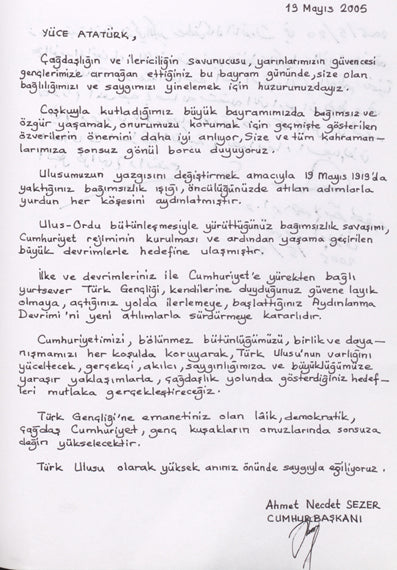 19 Mayıs 2005
YÜCE ATATÜRK,
Çağdaşlığın ve ilericiliğin savunucusu, yarınlarımızın güvencesi
gençlerimize armağan ettiğiniz bu bayram gününde, size olan
bağlılığımızı ve saygımızı yinelemek için huzurunuzdayız.
Coşkuyla kutladığımız büyük bayramımızda bağımsız ve
özgür yaşamak, onurumuzu korumak için geçmişte gösterilen
özverilerin önemini daha iyi anlıyor, Size ve tüm kahraman-
larımıza sonsuz gönül borcu duyuyoruz.
Ulusumuzun yazgısını değiştirmek amacıyla 19 Mayıs 1919'da
yaktığınız bağımsızlık ışığı, öncülüğünüzde atılan adımlarla
yurdun her köşesini aydınlatmıştır.
Ulus-Ordu bütünleşmesiyle yürüttüğünüz bağımsızlık savaşımı,
Cumhuriyet rejiminin kurulması ve ardından yaşama geçirilen
büyük devrimlerle hedefine ulaşmıştır.
İlke ve devrimleriniz ile Cumhuriyet'e yürekten bağlı
yurtsever Türk Gençliği, kendilerine duyduğunuz güvene layık
olmaya, açtığınız yolda ilerlemeye, başlattığınız Aydınlanma
Devrimi'ni yeni atılımlarla sürdürmeye kararlıdır.
Cumhuriyetimizi, bölünmez bütünlüğümüzü, birlik ve daya-
nışmamızı her koşulda koruyarak, Türk Ulusu'nun varlığını
yüceltecek, gerçekçi, akılcı, saygınlığımıza ve büyüklüğümüze
yaraşır yaklaşımlarla, çağdaşlık yolunda gösterdiğiniz hedef-
leri mutlaka gerçekleştireceğiz.
Türk Gençliği'ne emanetiniz olan lâik, demokratik,
çağdaş Cumhuriyet, genç kuşakların omuzlarında sonsuza
değin yükselecektir.
Türk Ulusu olarak yüksek anınız önünde saygıyla eğiliyoruz.
Ahmet Necdet SEZER
CUMHURBAŞKANI